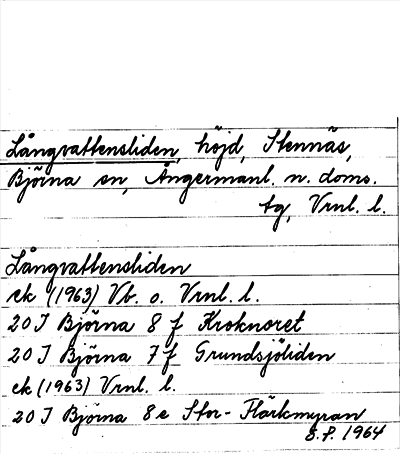 Långvattensliden, höjd, Stennäs,
Björna sn, Ångermanl. n. doms.
tg, Vrnl. l.
Långvattensliden
ek (1963) Vb. o. Vrnl. l.
20 I Björna 8 f Kroknoret
20 I Björna 7 f Grundsjöliden
ek (1963) Vrnl. l.
20 I Björna 8 e Stor-Flärkmyran
S.P. 1964